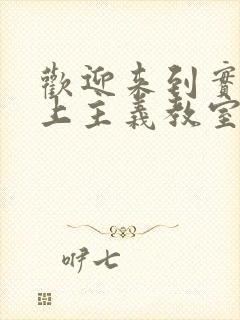 歡迎來到實
上主義教室
咿七